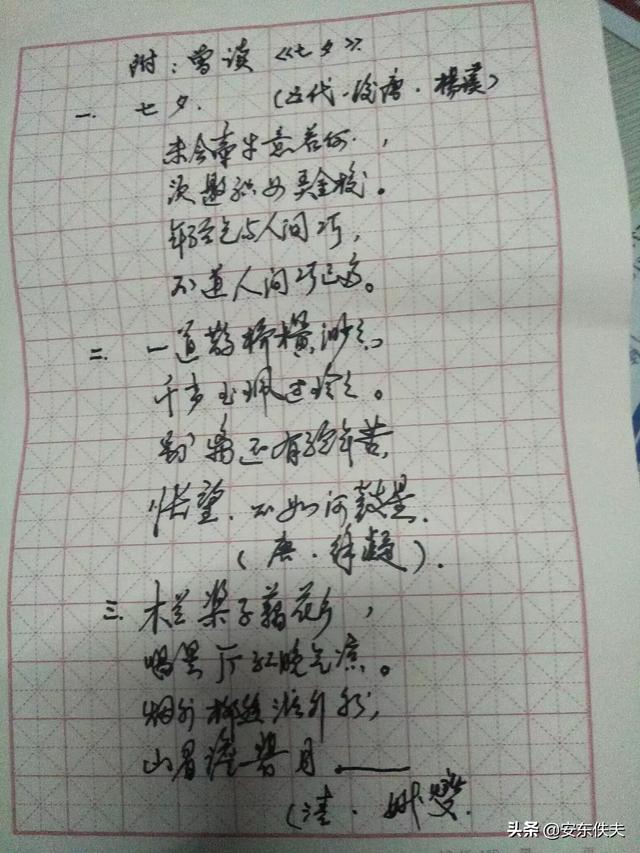 附:曾读《七夕》.
一. 七夕. (五代·後唐·楊璞)
未会牵牛意若何,
须邀织女弄金梭。
年年乞与人间巧,
不道人间巧已多。
二. 一道鹊桥横渺々,
千声玉珮过玲々。
别离还有经年苦,
怅望不如河鼓星.
(唐·徐凝).
三. 木兰桨子藕花乡,
唱罢厅红晚气凉。
烟外柳丝湖外水,
山眉澹碧月.——
(清·姚燮.
头条 @安东佚夫